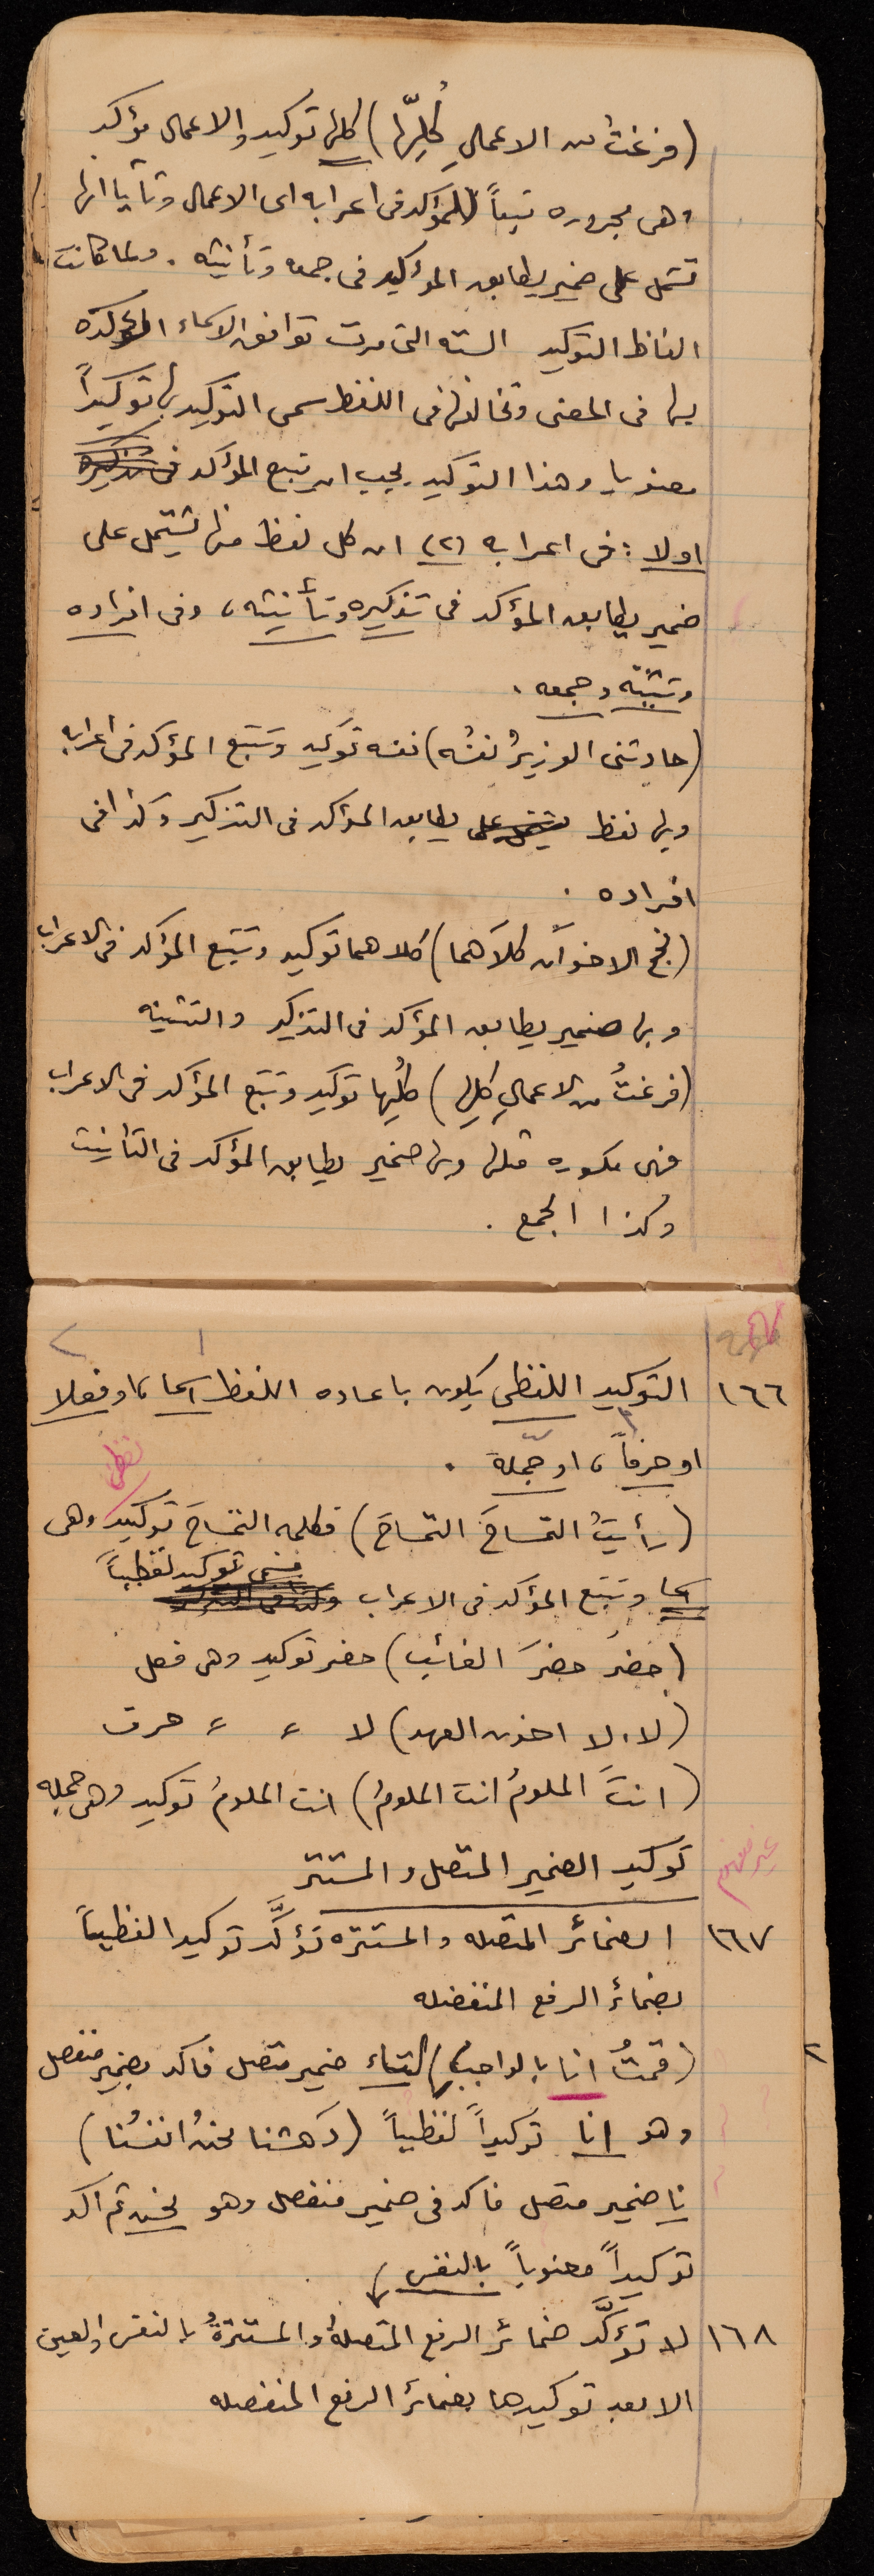 (فرغتُ من الاعمالِ كُلِّها) كلها توكيد والاعمال مؤكد
وهى مجروره تبعاً للمؤكد فى اعرابه اى الاعمال وثانيا انها
تشمل على ضمير يطابق المؤكيد فى جمعه وتأنيثه . ولما كانت
الفاظ التوكيد السته التى مرت توافق الاسماء المؤكده
بها فى المعنى وتخالفها فى اللفظ سمى التوكيد بها توكيداً
معنويا وهذا التوكيد يجب ان يتبع المؤكد فى تذكيره
اولا : فى اعرابه (٢) ان كل لفظ منها يشتمل على
ضمير يطابق المؤكد فى تذكيره وتأنيثه ، وفى افراده
وتثنيته وجمعه .
(حادثنى الوزيرُ نفسُه) نفسه توكيد وتتبع المؤكد فى اعرابه
وبها لفظ يشتمل على يطابق المؤكد فى التذكير وكذا فى
افراده .
(نجح الاخوان كلاهما) كلاهما توكيد وتتبع المؤكد فى الاعراب
وبها ضمير يطابق المؤكد فى التذكير والتثنيه
(فرغتُ من الاعمالِ كلِها) كلِها توكيد وتتبع المؤكد فى الاعراب
فهى مكسوره مثلها وبها ضمير يطابق المؤكد فى التأنيث
وكذا الجمع .
١٦٦ التوكيد اللفظى يكون باعاده اللفظ اسما ، او فعلا
او حرفاً ، او جملة .
لفظى
(رأيتُ التمساحَ التمساحَ) فكلمه التمساحَ توكيد وهى
فهى توكيد لفظياً
اسما وتتبع المؤكد فى الاعراب
(حضرَ حضرَ الغائب) حضر توكيد وهى فعل
(لا ، لا اخون العهد) لا 〃 〃 حرف
(انتَ الملومُ انت الملومُ) انت الملومُ توكيد وهى جمله
غير مفهوم
توكيد الضمير المتصل والمستتر
١٦٧ الضمائر المتصله والمستتره تؤكَّد توكيدا لفظياً
بضمائر الرفع المنفصله
(قمتُ انا بالواجب) التاء ضمير متصل فاكد بضمير منفصل
وهو انا توكيداً لفظياً (دَهشنا نحنُ انفسُنا)
نا ضمير متصل فاكد فى ضمير منفصل وهو نحن ثم اكد
توكيداً معنوياً بالنفس
١٦٨ لا تؤكَّد ضمائر الرفع المتصلهُ والمستترةُ بالنفس والعين
الا بعد توكيدها بضمائر الرفع المنفصله